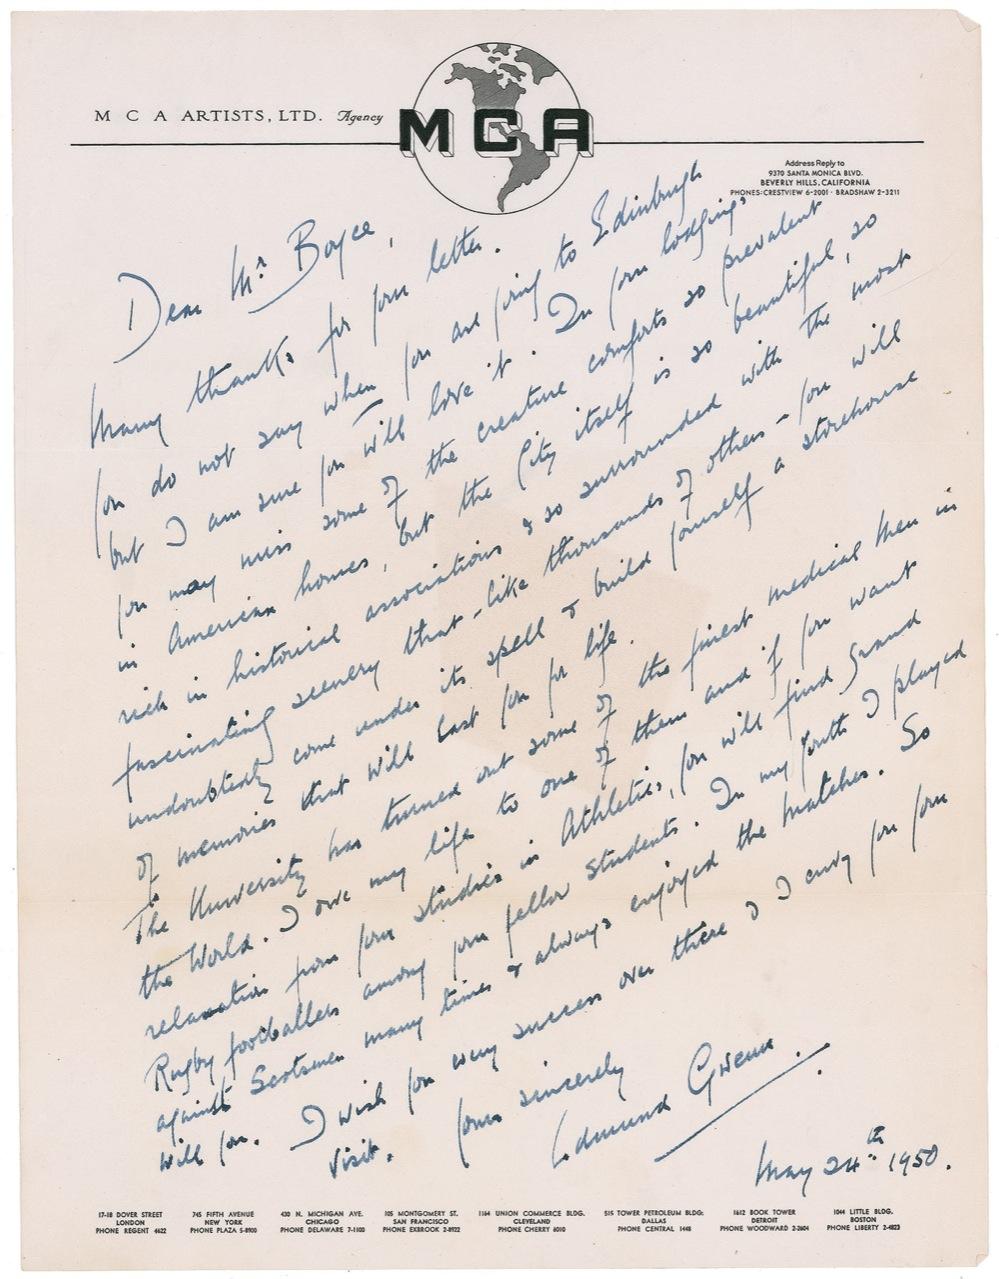 M C A ARTISTS, LTD. Agency
MCA
Address Reply to
9370 SANTA MONICA BLVD.
BEVERLY HILLS, CALIFORNIA
PHONES: CRESTVIEW 6-2001 · BRADSHAW 2-3211
Dear Mr. Boyce,
Many thanks for your letter.
You do not say when you are going to Edinburgh
but I am sure you will love it. In your lodgings
you may miss some of the creature comforts so prevalent
in American homes, but the City itself is so beautiful, so
rich in historical associations & so surrounded with the most
fascinating scenery that - like thousands of others - you will
undoubtedly come under its spell & build yourself a storehouse
of memories that will last you for life.
The University has turned out some of the finest medical men in
the World. I owe my life to one of them and if you want
relaxation from your studies in Athletics, you will find grand
Rugby footballers among your fellow students. In my Youth I played
against Scotsmen many times & always enjoyed the matches. So
will you. I wish you every success over there & I envy you your
visit.
Yours sincerely
Edmund Gwenn.
May 24th 1950.
17-18 DOVER STREET
LONDON
PHONE REGENT 4622
745 FIFTH AVENUE
NEW YORK
PHONE PLAZA 5-8900
430 N. MICHIGAN AVE.
CHICAGO
PHONE DELAWARE 7-1100
105 MONTGOMERY ST.
SAN FRANCISCO
PHONE EXBROOK 2-8922
1164 UNION COMMERCE BLDG.
CLEVELAND
PHONE CHERRY 6010
515 TOWER PETROLEUM BLDG.
DALLAS
PHONE CENTRAL 1448
1612 BOOK TOWER
DETROIT
PHONE WOODWARD 2-2604
1044 LITTLE BLDG.
BOSTON
PHONE LIBERTY 2-4823